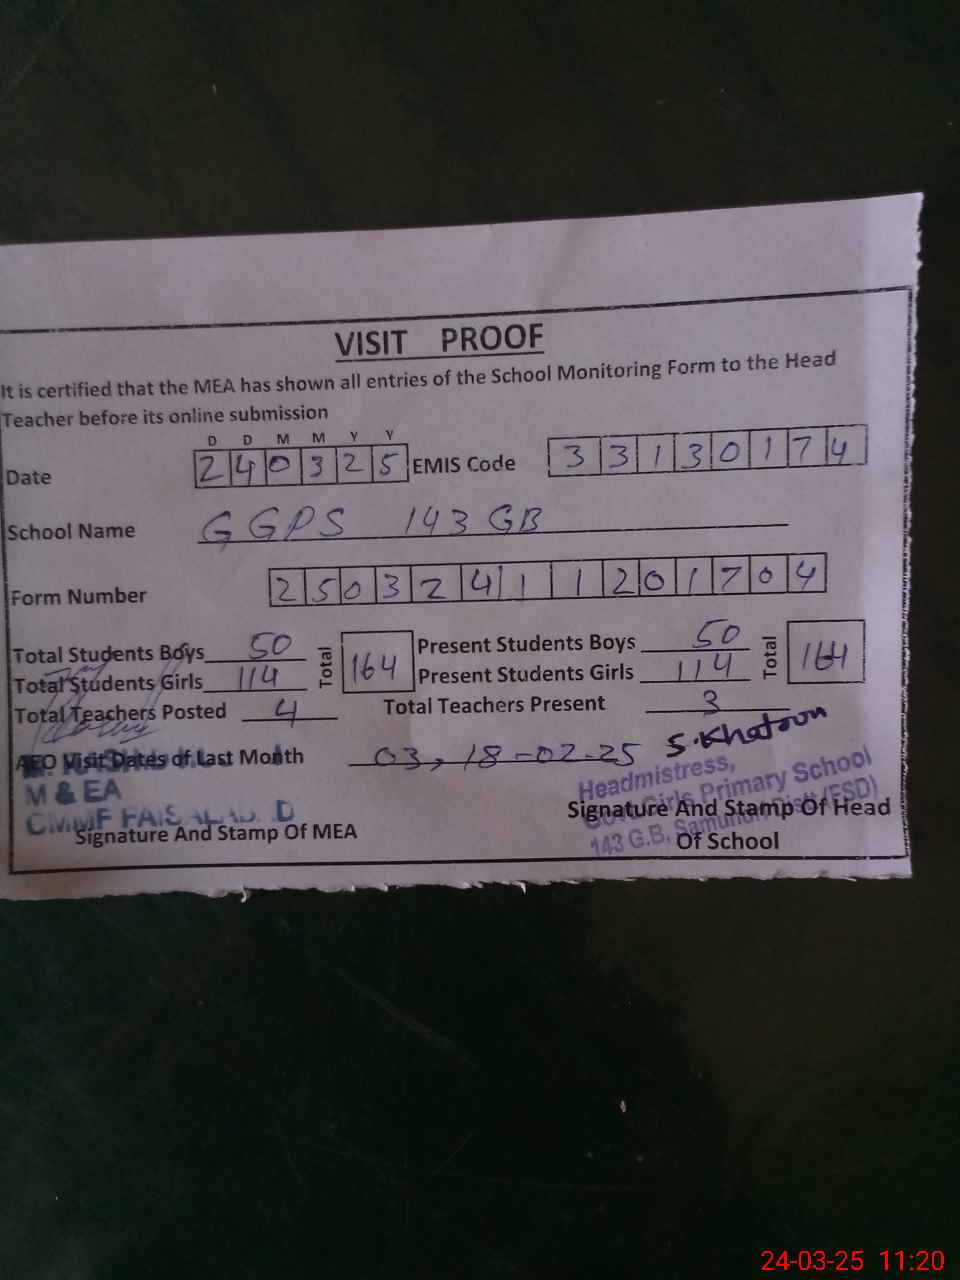 VISIT PROOF
It is certified that the MEA has shown all entries of the School Monitoring Form to the Head
Teacher before its online submission
D D M M Y Y
Date 2 4 0 3 2 5 EMIS Code 3 3 1 3 0 1 7 4
School Name GGPS 143 GB
Form Number 2 5 0 3 2 4 1 1 2 0 1 7 0 4
Total Students Boys 50 Total 164 Present Students Boys 50 Total 164
Total Students Girls 114 Present Students Girls 114
Total Teachers Posted 4 Total Teachers Present 3
AEO Visit Dates of Last Month 03, 18-02-25 S.Khatoon
M & EA
Headmistress,
Girls Primary School
143 G.B.
Signature And Stamp Of MEA
Signature And Stamp Of Head
Of School
24-03-25 11:20